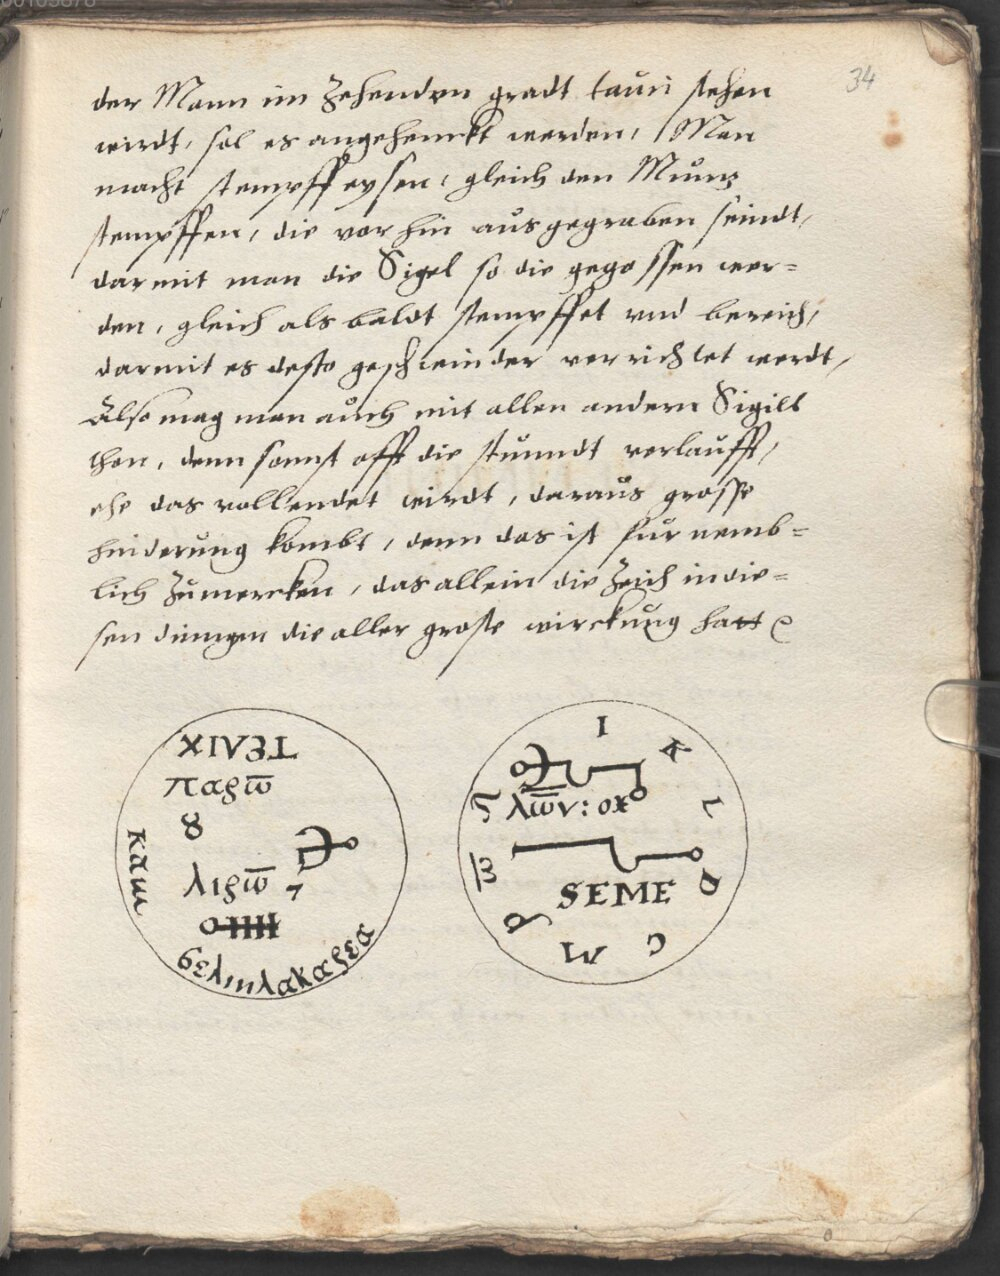 34
der Monn im Zehenden gradt tauri stehen
wirdt, sol es angehenckt werden, Man
macht stempffeysen, gleich den Müntz
stempffen, die vorhin ausgegraben seindt,
darmit man die Sigel so die gegossen wer=
den, gleich als baldt stempffet vnd bereich,
darmit es desto geschwinder verrichtet werdt,
Also mag man auch mit allen andern Sigill
thon, denn sonst offt die stunndt verlaufft,
ehe das vollendet wirdt, daraus grosse
hinderung kombt, denn das ist fürnemb=
lich zumercken, das allein die Zeich in die=
sen dingen die aller groste wirckung hatt
XIVƎT
παρω̅
8
λιρω̅
καω
I
K
L
D
C
M
λω̅ν: οχ
SEME